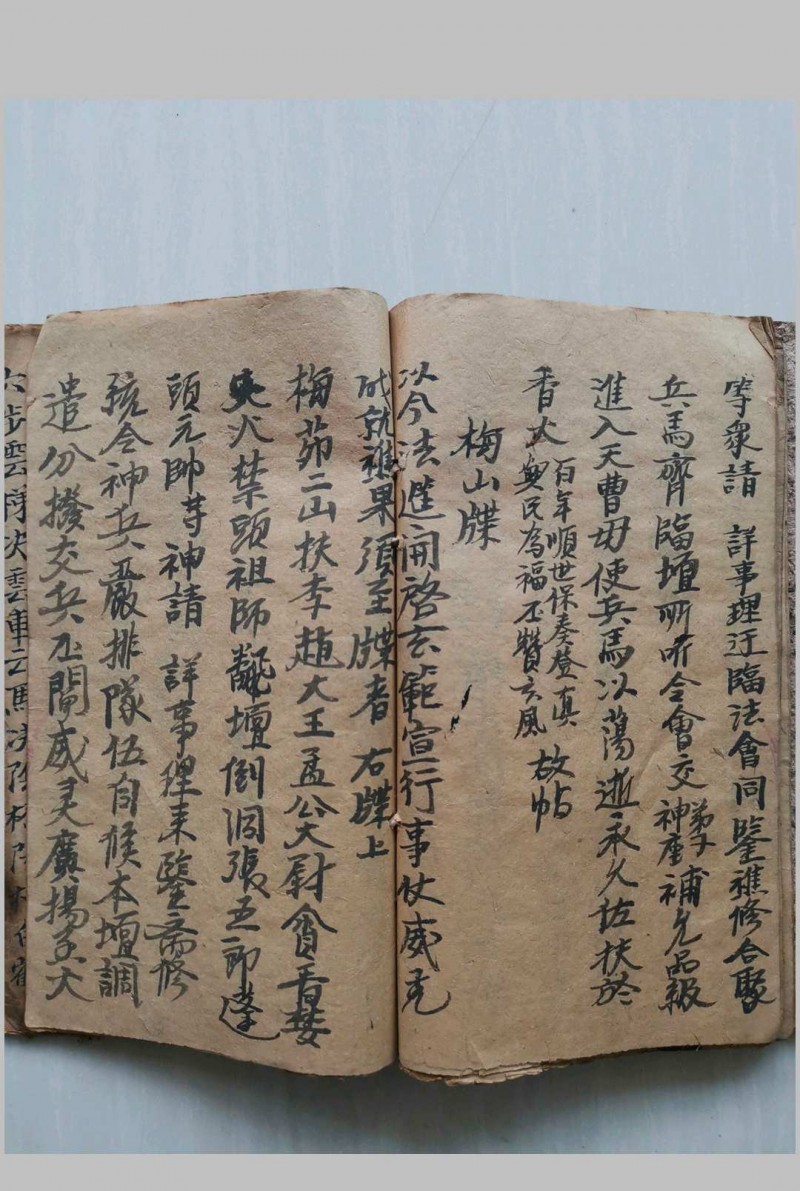 等衆請 詳事理迂臨法會同鑒譙修合聚
兵馬齊臨壇所听令會交弟子神座補充品級
進入天曹毋使兵馬以蕩逝永久佐扶於
香火百年順世保奏登真與民為福丕贊玄風 故帖
梅山牒
以今法進開啓玄範宣行事仗威光
成就譙果須至牒者 右牒上
梅茆二山扶李趙大王孟公大尉
火禁頭祖師翻壇倒洞張五郎逢
頭元帥等神請 詳事理來鑒斋修
統令神兵嚴排隊伍自候本壇調
遣分撥交兵丕闡威灵廣揚玄大